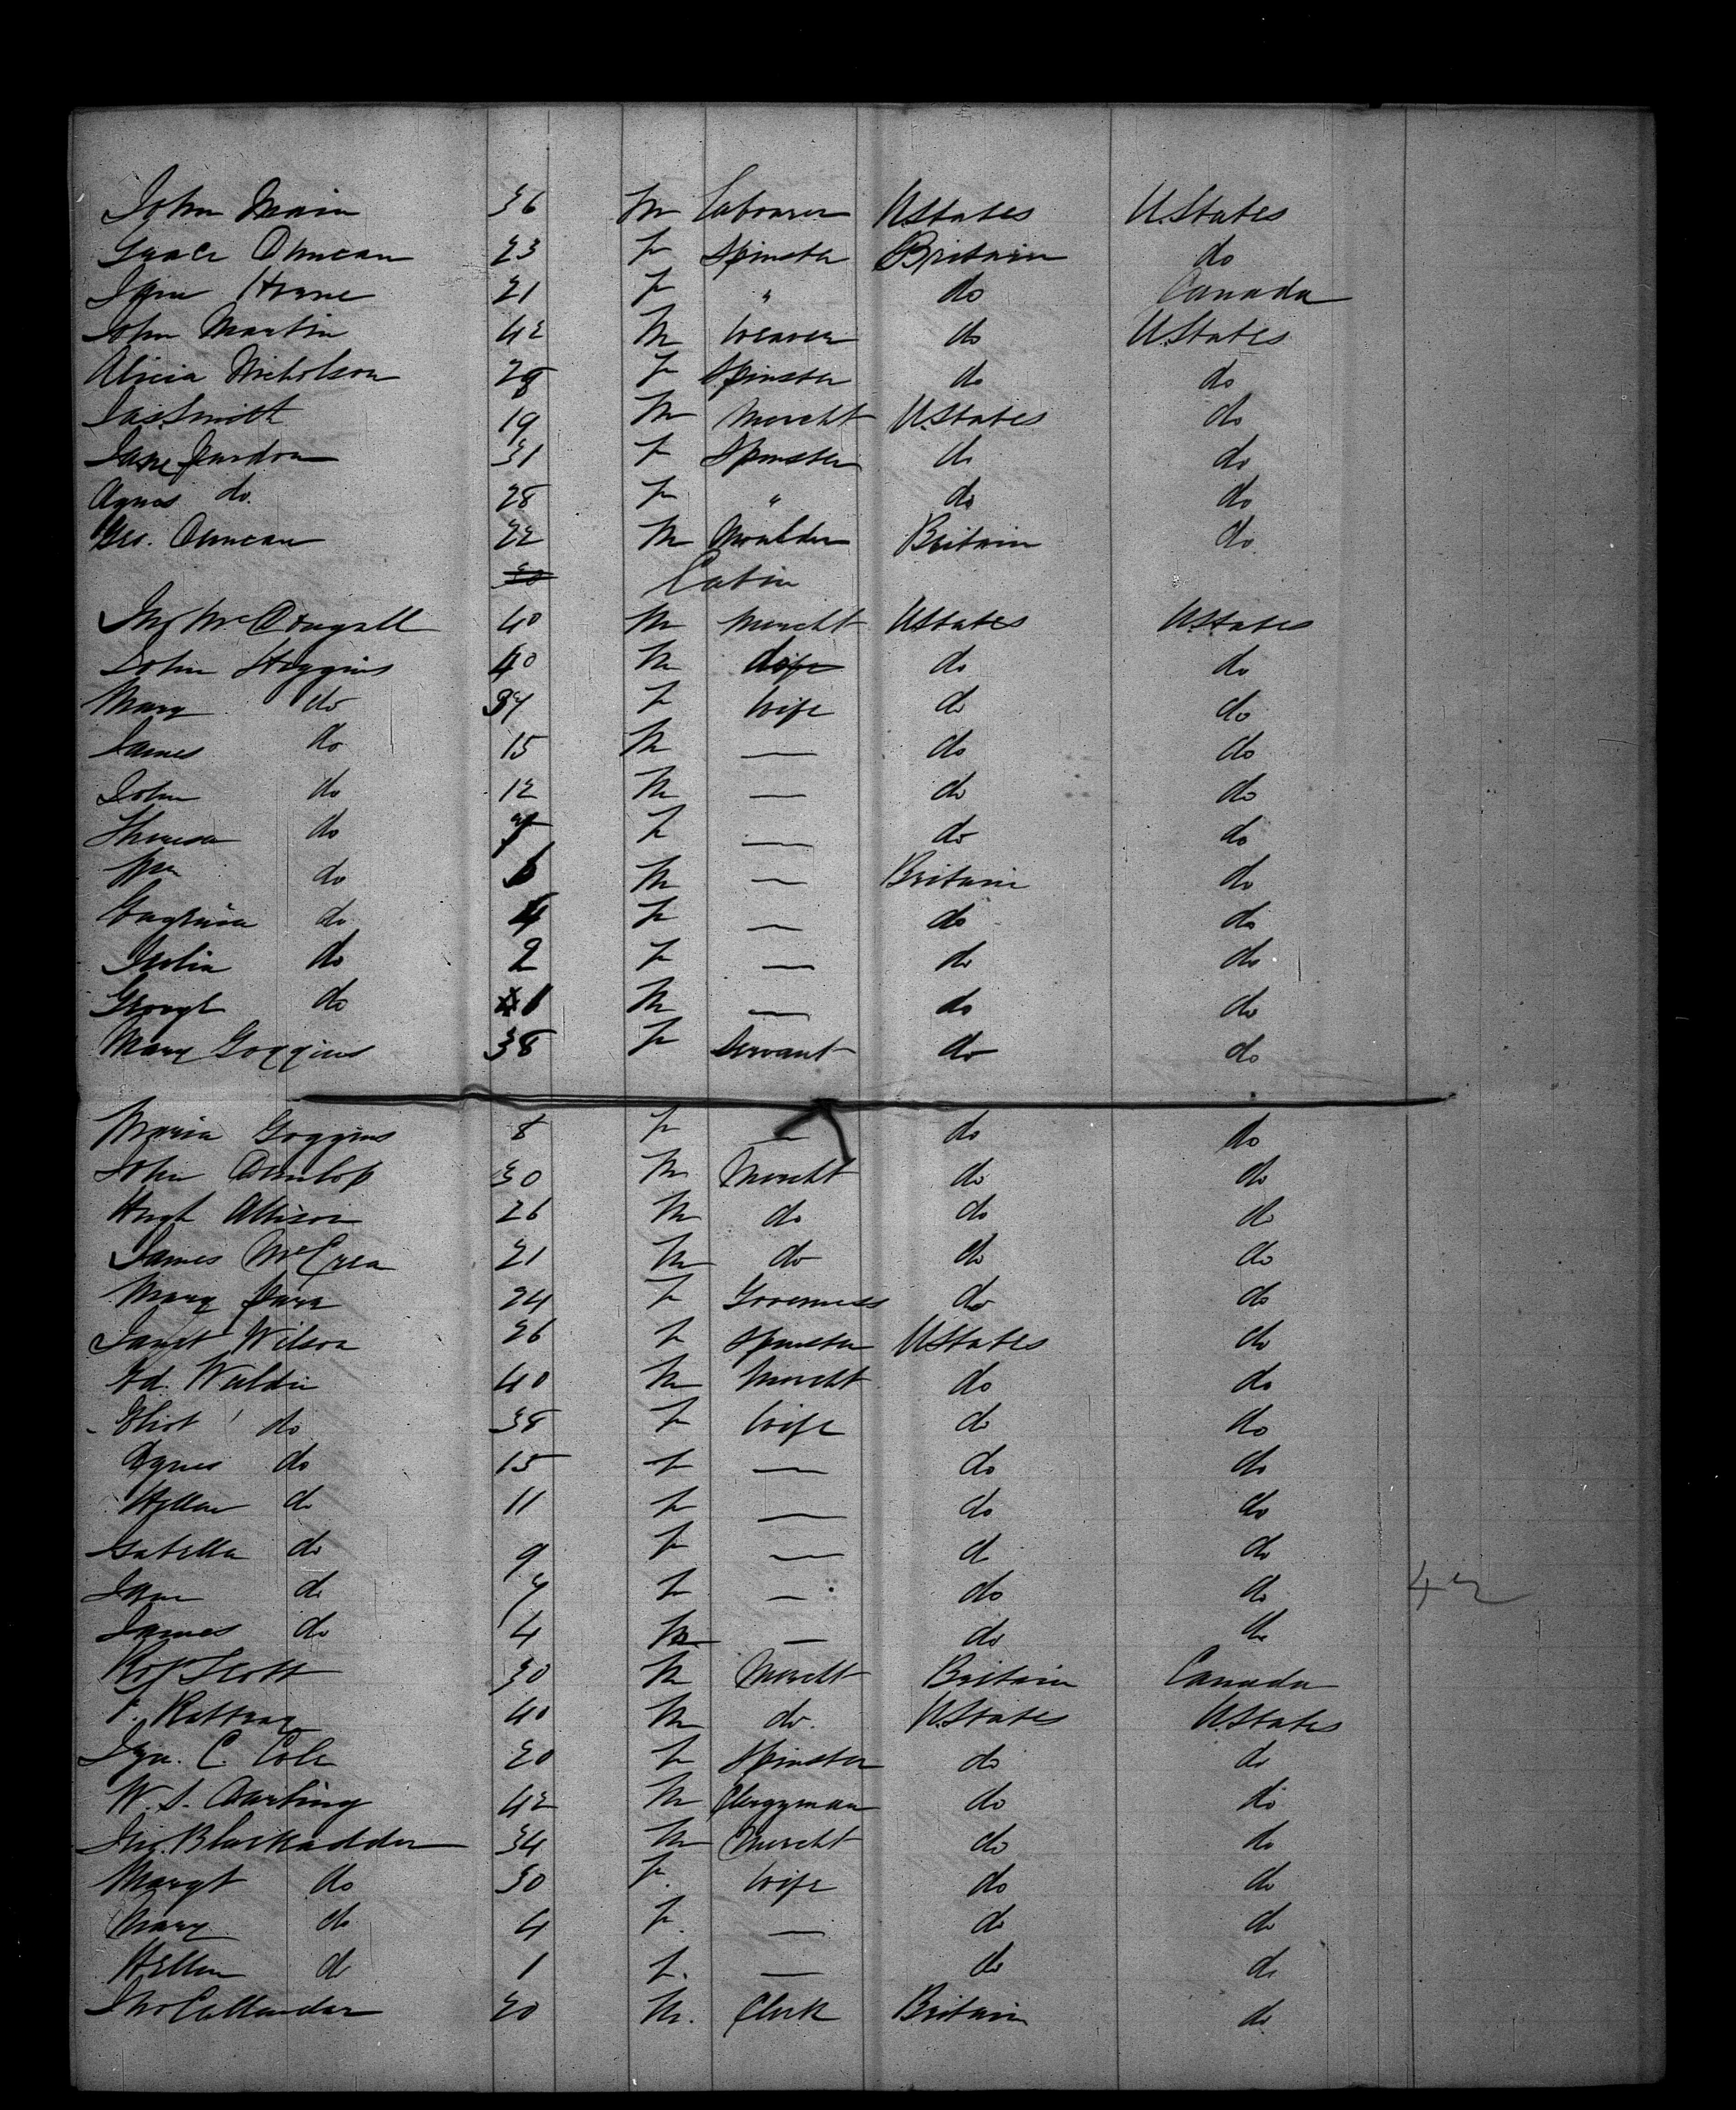 John Main 36 M Labourer UStates U.States
Grace Duncan 23 F Spinster Britain do
Jane Horne 21 F " do Canada
John Martin 42 M Weaver do U.States
Alicia Nicholson 28 F Spinster do do
Jas. Smith 19 M Mercht UStates do
Jane Jardon 31 F Spinster do do
Agnes do 28 F " do do
Geo. Duncan 22 M Moulder Britain do
30 Cabin
Jno McDougall 40 M Mercht UStates UStates
John Hoggins 40 M do do
Mary do 37 F Wife do do
James do 15 M — do do
John do 12 M — do do
Theresa do 7 F — do do
Wm do M — Britain do
do 4 F — do do
Julia do 2 F — do do
do 1 M — do do
Mary Goggins 38 F Servant do do
Maria Goggins 8 F — do do
John Dunlop 30 M Mercht do do
Hugh Allison 26 M do do do
James McCrea 21 M do do do
Mary 24 F Governess do do
Janet Wilson 26 F Spinster UStates do
Ed. Waldie 40 M Mercht do do
do 38 F Wife do do
Agnes do 15 F — do do
Hellen do 11 F — do do
Isabella do 9 F — do do
Jane do 7 F — do do 42
James do 4 M — do do
Robt Scott 30 M Mercht Britain Canada
Rattray 40 M do UStates UStates
C. Cole 20 F Spinster do do
W. S. Darling 42 M Clergyman do do
Jno. Blackadder 34 M Mercht do do
Margt do 30 F. Wife do do
Mary do 4 F. — do do
Hellen do 1 F. — do do
Jno Callander 20 M. Clerk Britain do